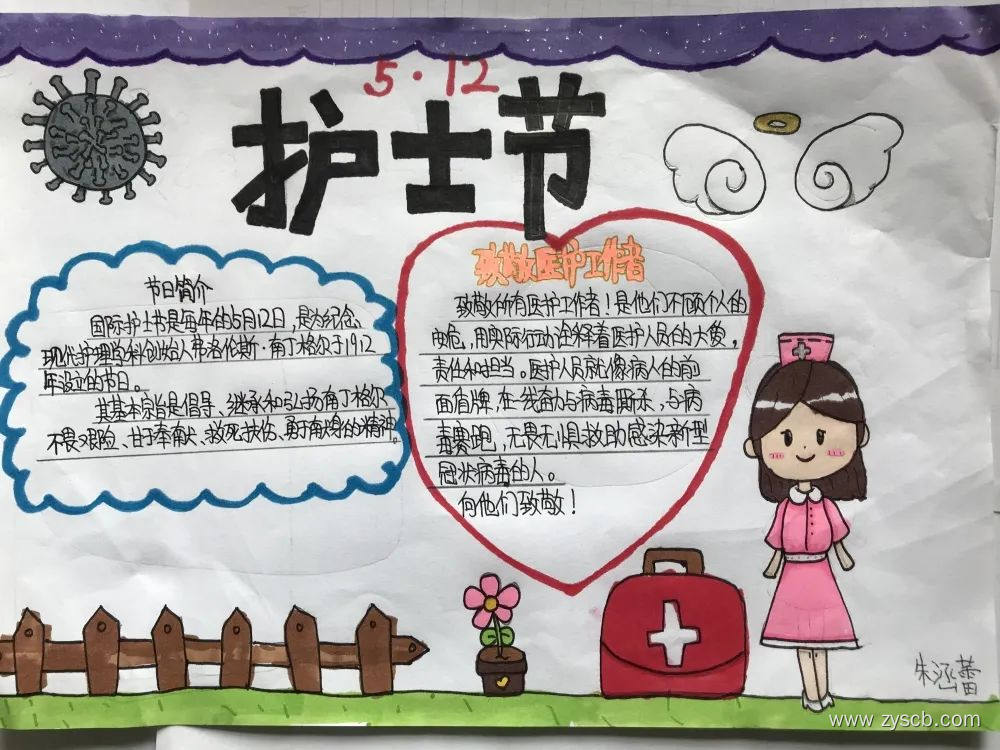 5·12
护士节
节日简介
国际护士节是每年的5月12日,是为纪念
现代护理学科创始人弗洛伦斯·南丁格尔于1912
年设立的节日。
其基本宗旨是倡导、继承和弘扬南丁格尔
不畏艰险、甘于奉献、救死扶伤、勇于献身的精神。
致敬医护工作者
致敬所有医护工作者!是他们不顾个人的
安危,用实际行动诠释着医护人员的大爱,
责任和担当。医护人员就像病人的前
面盾牌,在一线奋力与病毒厮杀,与病
毒赛跑,无畏无惧救助感染新型
冠状病毒的人。
向他们致敬!
朱涵蕾
www.zyscb.com